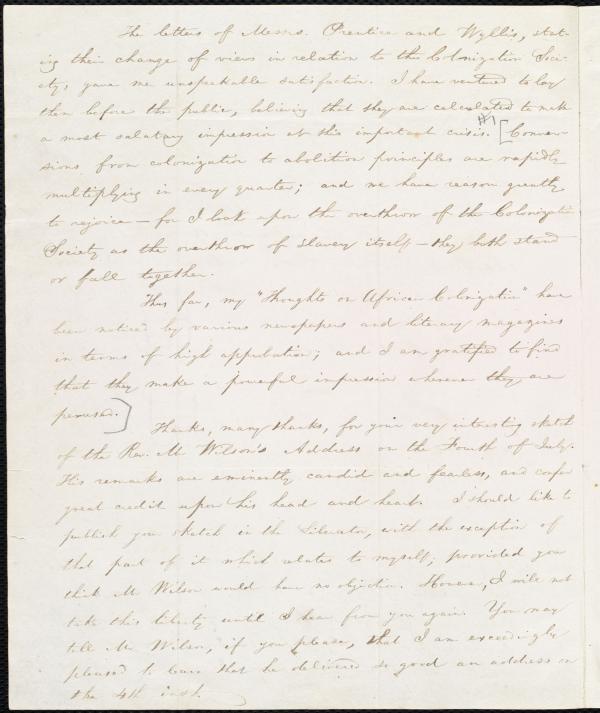 The letters of Messrs. Prentice and Wyllis, stat-
ing their change of views in relation to the Colonization Soci-
ety, gave me unspeakable satisfaction. I have ventured to lay
them before the public, believing that they are calculated to make
a most salutary impression at this important crisis. #1 [Conver-
sions from colonization to abolition principles are rapidly
multiplying in every quarter; and we have reason greatly
to rejoice — for I look upon the overthrow of the Colonization
Society as the overthrow of slavery itself — they both stand
or fall together.
Thus far, my "Thoughts on African Colonization" have
been noticed by various newspapers and literary magazines
in terms of high approbation; and I am gratified to find
that they make a powerful impression wherever they are
perused.]
Thanks, many thanks, for your very interesting sketch
of the Rev. Mr Wilson's Address on the Fourth of July.
His remarks are eminently candid and fearless, and confer
great credit upon his head and heart. I should like to
publish your sketch in the Liberator, with the exception of
that part of it which relates to myself; provided you
think Mr Wilson would have no objection. However, I will not
take this liberty until I hear from you again. You may
tell Mr Wilson, if you please, that I am exceedingly
pleased to learn that he delivered so good an address on
the 4th inst.